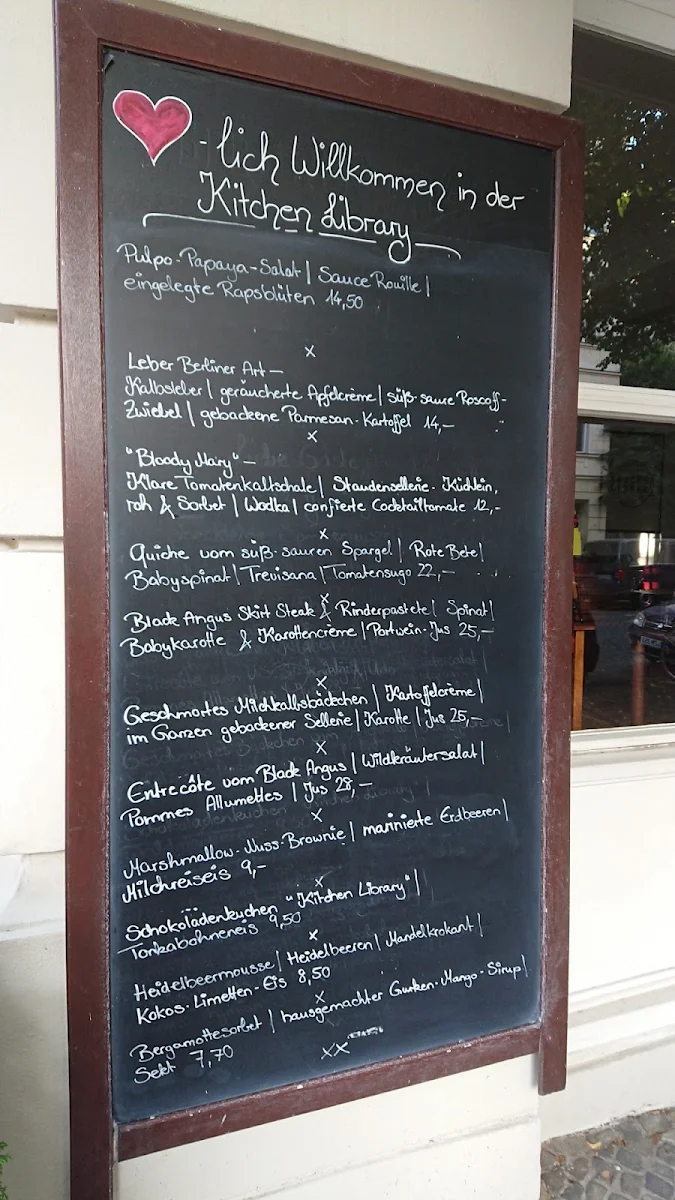 -lich Willkommen in der
Kitchen Library
Pulpo-Papaya-Salat | Sauce Rouille |
eingelegte Rapsblüten 14,50
x
Leber Berliner Art –
Kalbsleber | geräucherte Apfelcrème | süß-saure Roscoff-
Zwiebel | gebackene Parmesan-Kartoffel 14,–
x
"Bloody Mary" –
Klare Tomatenkaltschale | Staudensellerie-Küchlein,
roh & Sorbet | Wodka | confierte Cocktailtomate 12,-
x
Quiche vom süß-sauren Spargel | Rote Bete |
Babyspinat | Trevisana | Tomatensugo 22,–
x
Black Angus Skirt Steak & Rinderpastete | Spinat |
Babykarotte & Karottencrème | Portwein-Jus 25,–
x
Geschmortes Milchkalbsbäckchen | Kartoffelcrème |
im Ganzen gebackener Sellerie | Karotte | Jus 25,–
x
Entrecôte vom Black Angus | Wildkräutersalat |
Pommes Allumettes | Jus 28,–
x
Marshmallow-Nuss-Brownie | marinierte Erdbeeren |
Milchreiseis 9,–
x
Schokolädenkuchen "Kitchen Library" |
Tonkabohneneis 9,50
x
Heidelbeermousse | Heidelbeeren | Mandelkrokant |
Kokos-Limetten-Eis 8,50
x
Bergamottesorbet | hausgemachter Gurken-Mango-Sirup |
Sekt 7,70
xx